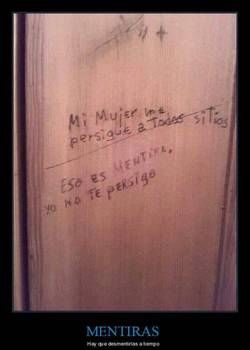 Mi Mujer me
persigue a Todos sitios
ESO ES MENTIRA,
yo NO TE PERSIGO
MENTIRAS
Hay que desmentirlas a tiempo